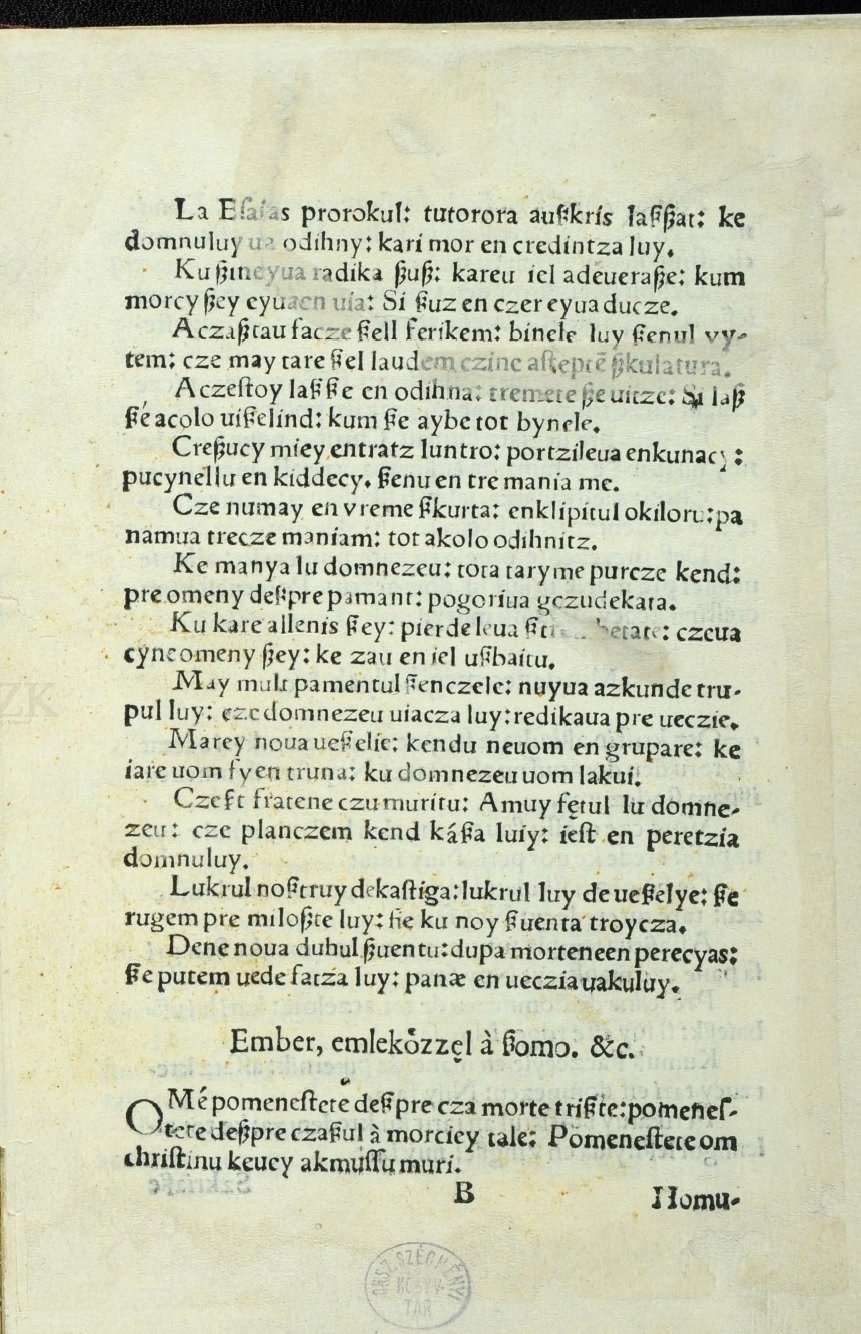 La Esaias prorokul: tutorora außkris laßßat: ke
domnuluy ua odihny: kari mor en credintza luy.
Ku ßineyua radika ßuß: kareu iel adeueraße: kum
morcy ßey eyuaen uia: Si ßuz en czer eyua ducze.
Aczaßtau facze ßell ferikem: binele luy ßenul vy-
tem: cze may tare ßel laudem czinc asteptē ßkulatura.
Aczestoy laßße en odihna: tremete ße uitze: Si laß
ße acolo uißelind: kum ße aybe tot bynele.
Creßucy miey entratz luntro: portzileua enkunacy:
pucynellu en kiddecy, ßenu en tre mania me.
Cze numay en vreme ßkurta: enklipitul okiloru: pa
namua trecze maniam: tot akolo odihnitz.
Ke manya lu domnezeu: tota taryme purcze kend:
pre omeny deßpre pamant: pogoriua gczudekata.
Ku kare allenis ßey: pierdeleua czeua
cyne omeny ßey: ke zau en iel ußbaitu.
May mult pamentul ßenczele: nuyua azkunde tru-
pul luy: cze domnezeu uiacza luy: redikaua pre ueczie.
Marey noua ueßelie: kendu neuom en grupare: ke
iare uom fy en truna: ku domnezeu uom lakui.
Czeßt fratene czu muritu: Amuy fętul lu domne-
zeu: cze planczem kend káßa luiy: iest en peretzia
domnuluy.
Lukrul noßtruy dekastiga: lukrul luy de ueßelye: ße
rugem pre miloßte luy: fie ku noy ßuenta troycza.
Dene noua duhul ßuentu: dupa morteneen perecyas:
ße putem uede fatza luy: panæ en ueczia uakuluy.
Ember, emlekőzzęl à ßomo. &c.
OMé pomenestete deßpre cza morte trißte: pomenes-
tete deßpre czaßul à morciey tale: Pomenestete om
christinu keucy akmussu muri.
B
Homu-
ORSZ. SZÉCHÉNYI
KÖNYV-
TÁR